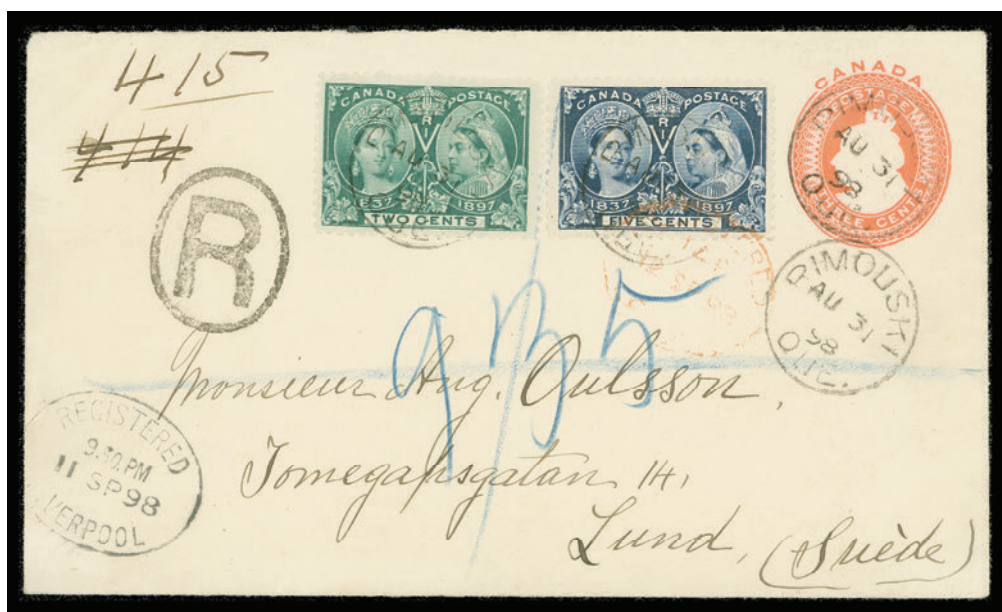 415
414
CANADA POSTAGE
R I
1837 1897
TWO CENTS
CANADA POSTAGE
R I
1837 1897
FIVE CENTS
CANADA
POSTAGE
THREE CENTS
AU 31
98
QUE.
RIMOUSKI
AU 31
98
QUE.
R
935
Monsieur Aug. Oulsson,
Tomegapsgatan 14,
Lund, (Suède)
REGISTERED
9.30.PM
11 SP 98
LIVERPOOL